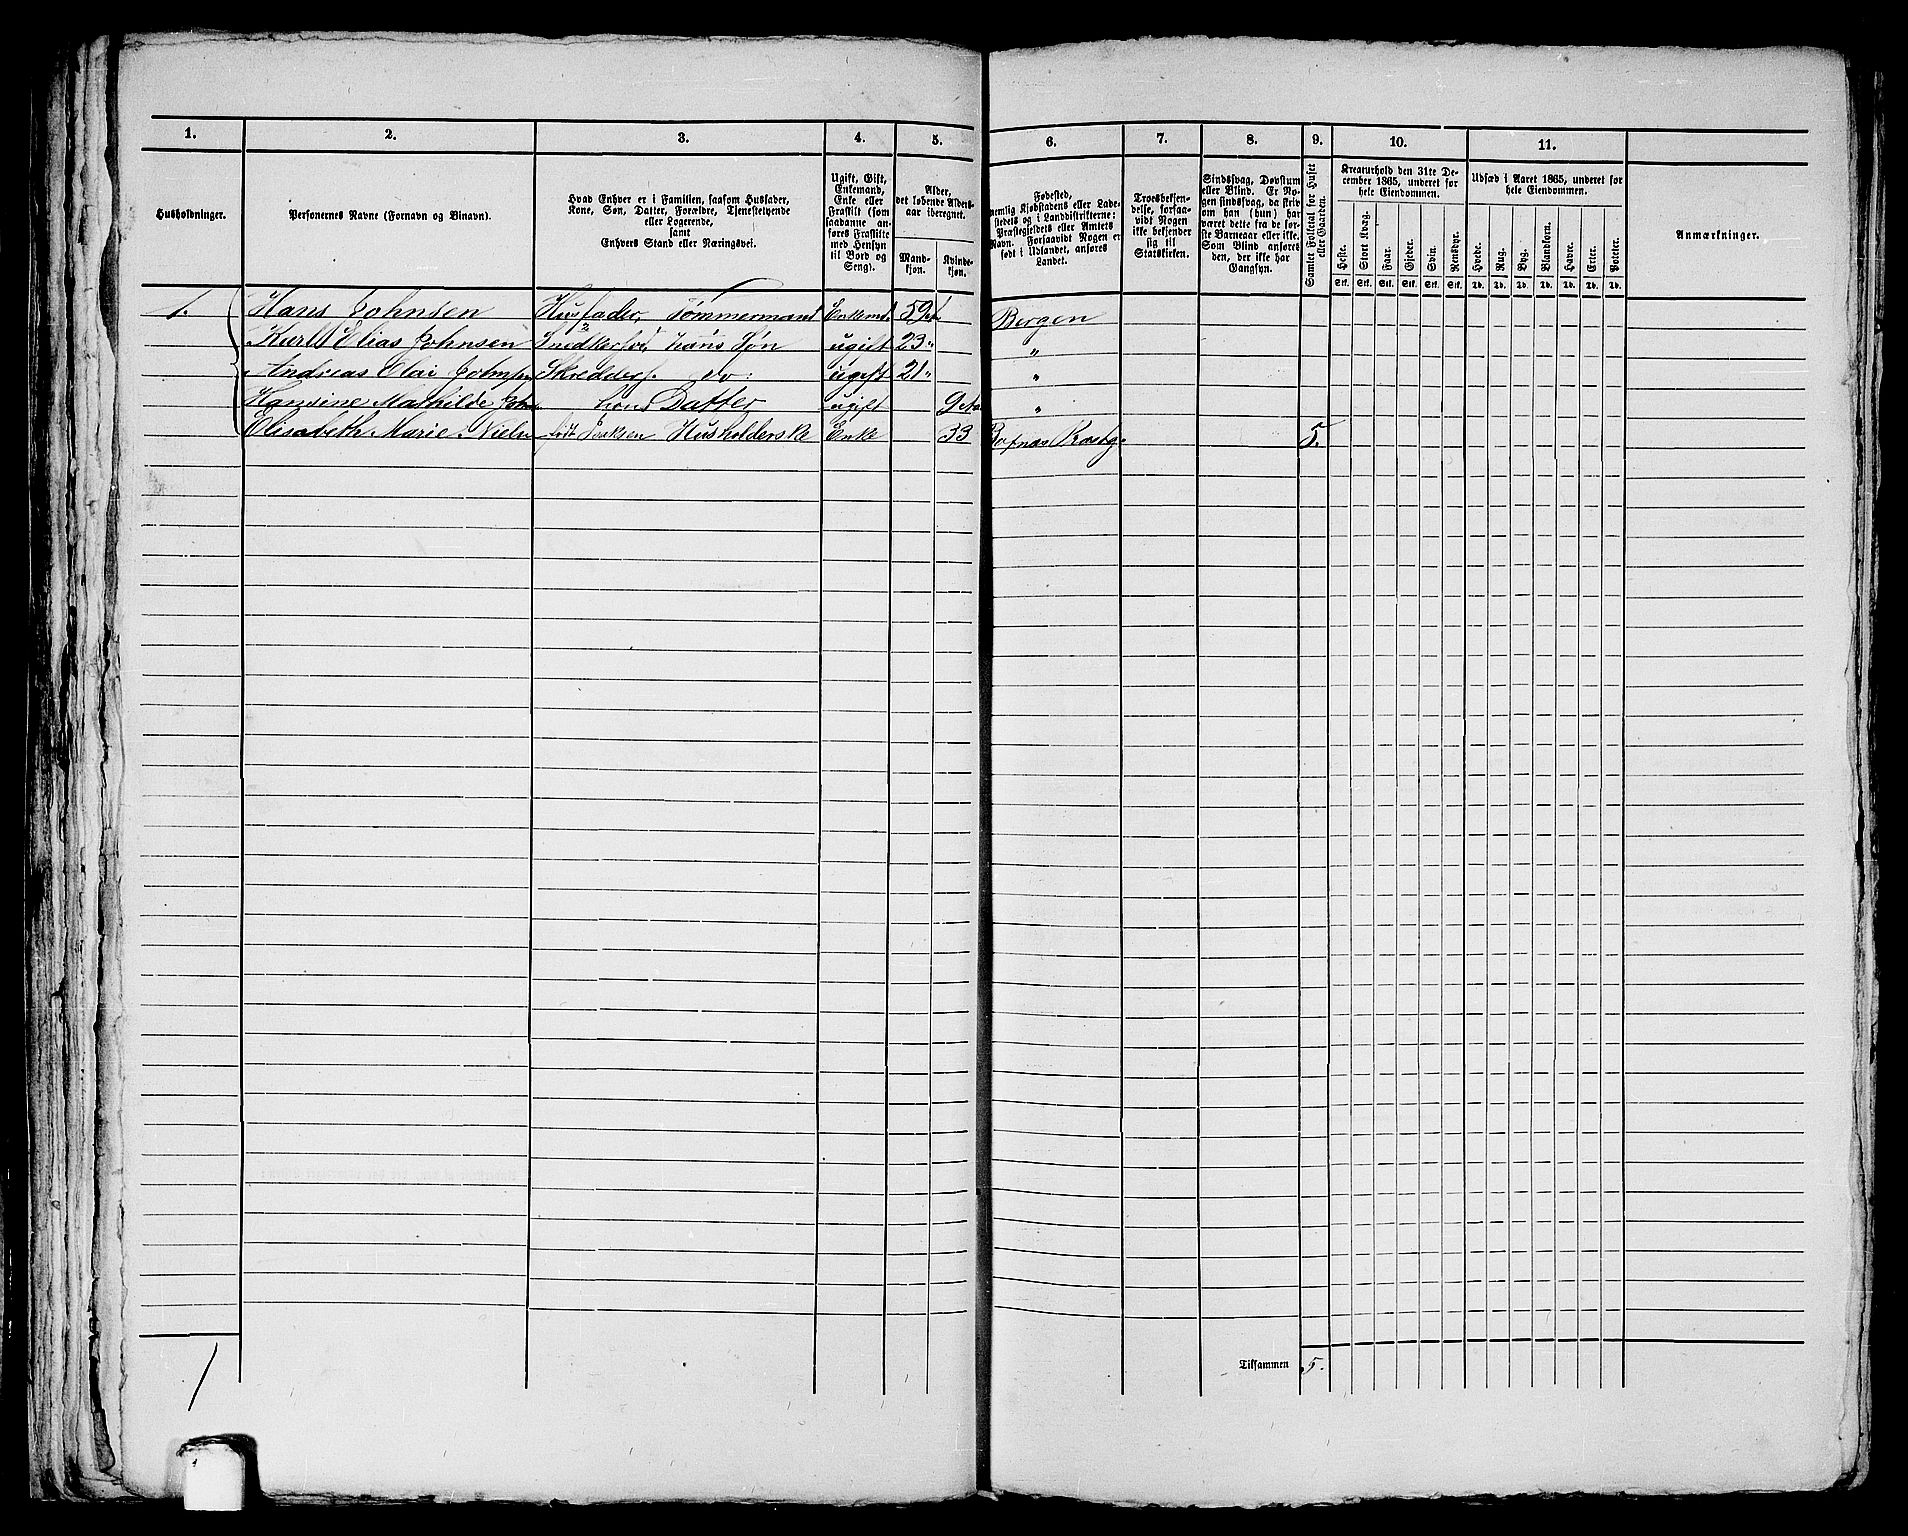 1. 2. 3. 4. 5. 6. 7. 8. 9. 10. 11.
Husholdninger.
Personernes Navne (Fornavn og Binavn).
Hvad Enhver er i Familien, saasom Husfader,
Kone, Søn, Datter, Forældre, Tjenestetyende
eller Logerende,
samt
Enhvers Stand eller Næringsvei.
Ugift, Gift,
Enkemand,
Enke eller
Fraskilt (som
saadanne an-
føres Fraskilte
med Hensyn
til Bord og
Seng).
Alder,
det løbende Alders-
aar iberegnet.
Mand-
kjøn.
Kvinde-
kjøn.
Fødested,
nemlig Kjøbstadens eller Lade-
stedets og i Landdistrikterne:
Præstegjeldets eller Amtets
Navn. Forsaavidt Nogen er
født i Udlandet, anføres
Landet.
Troesbekjen-
delse, forsaa-
vidt Nogen
ikke bekjender
sig til
Statskirken.
Sindssvag, Døvstum
eller Blind. Er No-
gen sindssvag, da skriv
om han (hun) har
været dette fra de før-
ste Barneaar eller ikke.
Som Blind anføres
den, der ikke har
Gangsyn.
Samlet Folketal for Huset
eller Gaarden.
Kreaturhold den 31te De-
cember 1865, underet for
hele Eiendommen.
Heste. Stort Kvæg. Faar. Gjeder. Svin. Rensdyr.
Stk. Stk. Stk. Stk. Stk. Stk.
Udsæd i Aaret 1865, underet for
hele Eiendommen.
Hvede. Rug. Byg. Blandkorn. Havre. Erter. Poteter.
Td. Td. Td. Td. Td. Td. Td.
Anmærkninger.
1. Hans Johnsen Husfader, Tømmermand Enkemd 59 Bergen
Kurt Elias Johnsen hans Søn ugift 23 "
Andreas Olai Johnsen Skredders. do: ugift 21 "
Hansine Mathilde John hans Datter ugift 9 "
Elisabeth Marie Niels født Husholderske Enke 33 5.
Tilsammen 5.
1